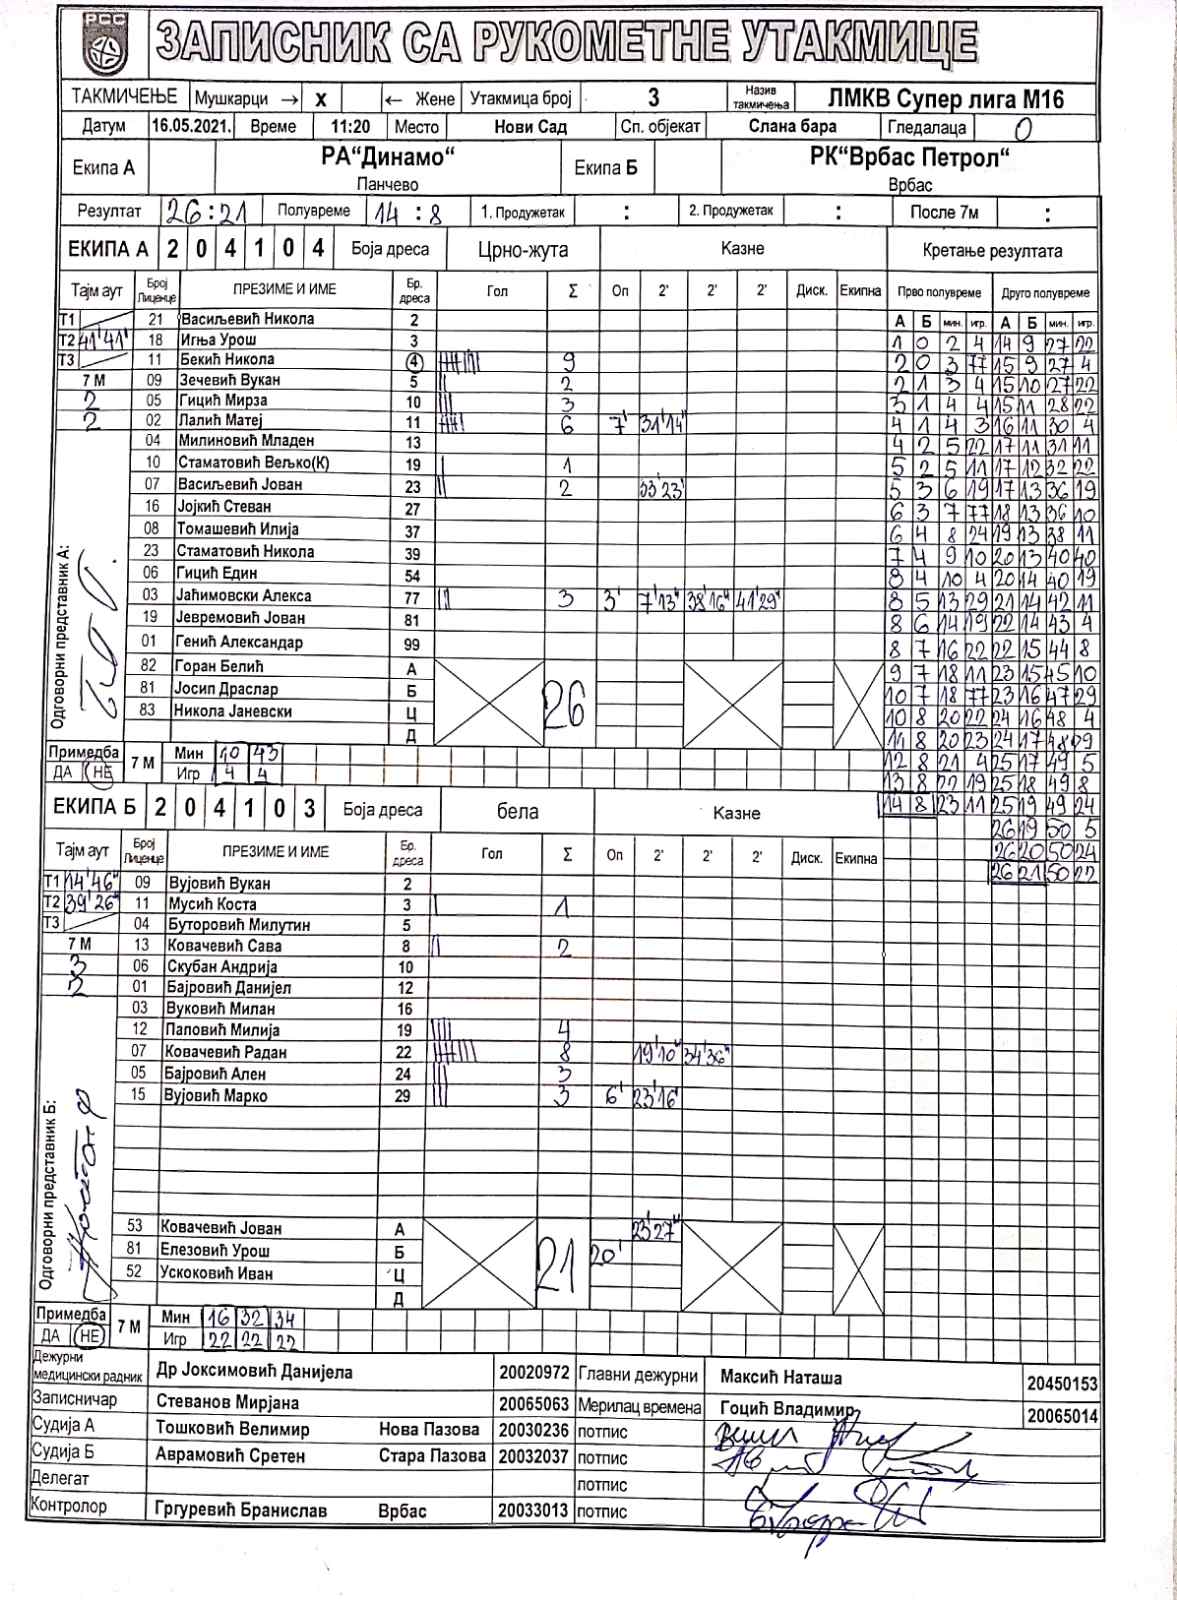 РСС
ЗАПИСНИК СА РУКОМЕТНЕ УТАКМИЦЕ
ТАКМИЧЕЊЕ Мушкарци → X ← Жене Утакмица број 3 Назив такмичења ЛМКВ Супер лига М16
Датум 16.05.2021. Време 11:20 Место Нови Сад Сп. објекат Слана бара Гледалаца 0
Екипа А РА“Динамо“ Панчево Екипа Б РК“Врбас Петрол“ Врбас
Резултат 26:21 Полувреме 14:8 1. Продужетак : 2. Продужетак : После 7м :
ЕКИПА А 2 0 4 1 0 4 Боја дреса Црно-жута Казне Кретање резултата
Тајм аут Број Лиценце ПРЕЗИМЕ И ИМЕ Бр. дреса Гол Σ Оп 2' 2' 2' Диск. Екипна Прво полувреме Друго полувреме
А Б мин. игр. А Б мин. игр.
Т1 21 Васиљевић Никола 2
Т2 41'41" 18 Игња Урош 3
Т3 11 Бекић Никола 4 9
7 М 09 Зечевић Вукан 5 2
2 05 Гицић Мирза 10 3
2 02 Лалић Матеј 11 6 7' 31'14"
04 Милиновић Младен 13
10 Стаматовић Вељко(К) 19 1
07 Васиљевић Јован 23 2 33'23"
16 Јојкић Стеван 27
08 Томашевић Илија 37
23 Стаматовић Никола 39
06 Гицић Един 54
03 Јаћимовски Алекса 77 3 3' 7'13" 38'16" 41'29"
19 Јевремовић Јован 81
01 Генић Александар 99
82 Горан Белић А
81 Јосип Драслар Б 26
83 Никола Јаневски Ц
Д
Одговорни представник А:
Примедба ДА НЕ 7 М Мин 10 43
Игр 4 4
1 0 2 4 14 9 27 22
2 0 3 77 15 9 27 4
2 1 3 4 15 10 27 22
3 1 4 4 15 11 28 22
4 1 4 3 16 11 30 4
4 2 5 22 17 11 31 11
5 2 5 11 17 12 32 22
5 3 6 19 17 13 36 19
6 3 7 77 18 13 36 10
6 4 8 24 19 13 38 11
7 4 9 10 20 13 40 40
8 4 10 4 20 14 40 19
8 5 13 29 21 14 42 11
8 6 14 19 22 14 43 4
8 7 16 22 22 15 44 8
9 7 18 11 23 15 45 10
10 7 18 77 23 16 47 29
10 8 20 22 24 16 48 4
11 8 20 23 24 17 48 29
12 8 21 4 25 17 49 5
13 8 22 19 25 18 49 8
14 8 23 11 25 19 49 24
26 19 50 5
26 20 50 24
26 21 50 22
ЕКИПА Б 2 0 4 1 0 3 Боја дреса бела Казне
Тајм аут Број Лиценце ПРЕЗИМЕ И ИМЕ Бр. дреса Гол Σ Оп 2' 2' 2' Диск. Екипна
Т1 14'46" 09 Вујовић Вукан 2
Т2 39'26" 11 Мусић Коста 3 1
Т3 04 Буторовић Милутин 5
7 М 13 Ковачевић Сава 8 2
3 06 Скубан Андрија 10
2 01 Бајровић Данијел 12
03 Вуковић Милан 16
12 Паповић Милија 19 4
07 Ковачевић Радан 22 8 19'10" 34'36"
05 Бајровић Ален 24 3
15 Вујовић Марко 29 3 6' 23'16"
53 Ковачевић Јован А 23'27"
81 Елезовић Урош Б 21 20'
52 Ускоковић Иван Ц
Д
Одговорни представник Б:
Примедба ДА НЕ 7 М Мин 16 32 34
Игр 22 22 22
Дежурни медицински радник Др Јоксимовић Данијела 20020972 Главни дежурни Максић Наташа 20450153
Записничар Стеванов Мирјана 20065063 Мерилац времена Гоцић Владимир 20065014
Судија А Тошковић Велимир Нова Пазова 20030236 потпис
Судија Б Аврамовић Сретен Стара Пазова 20032037 потпис
Делегат потпис
Контролор Гргуревић Бранислав Врбас 20033013 потпис